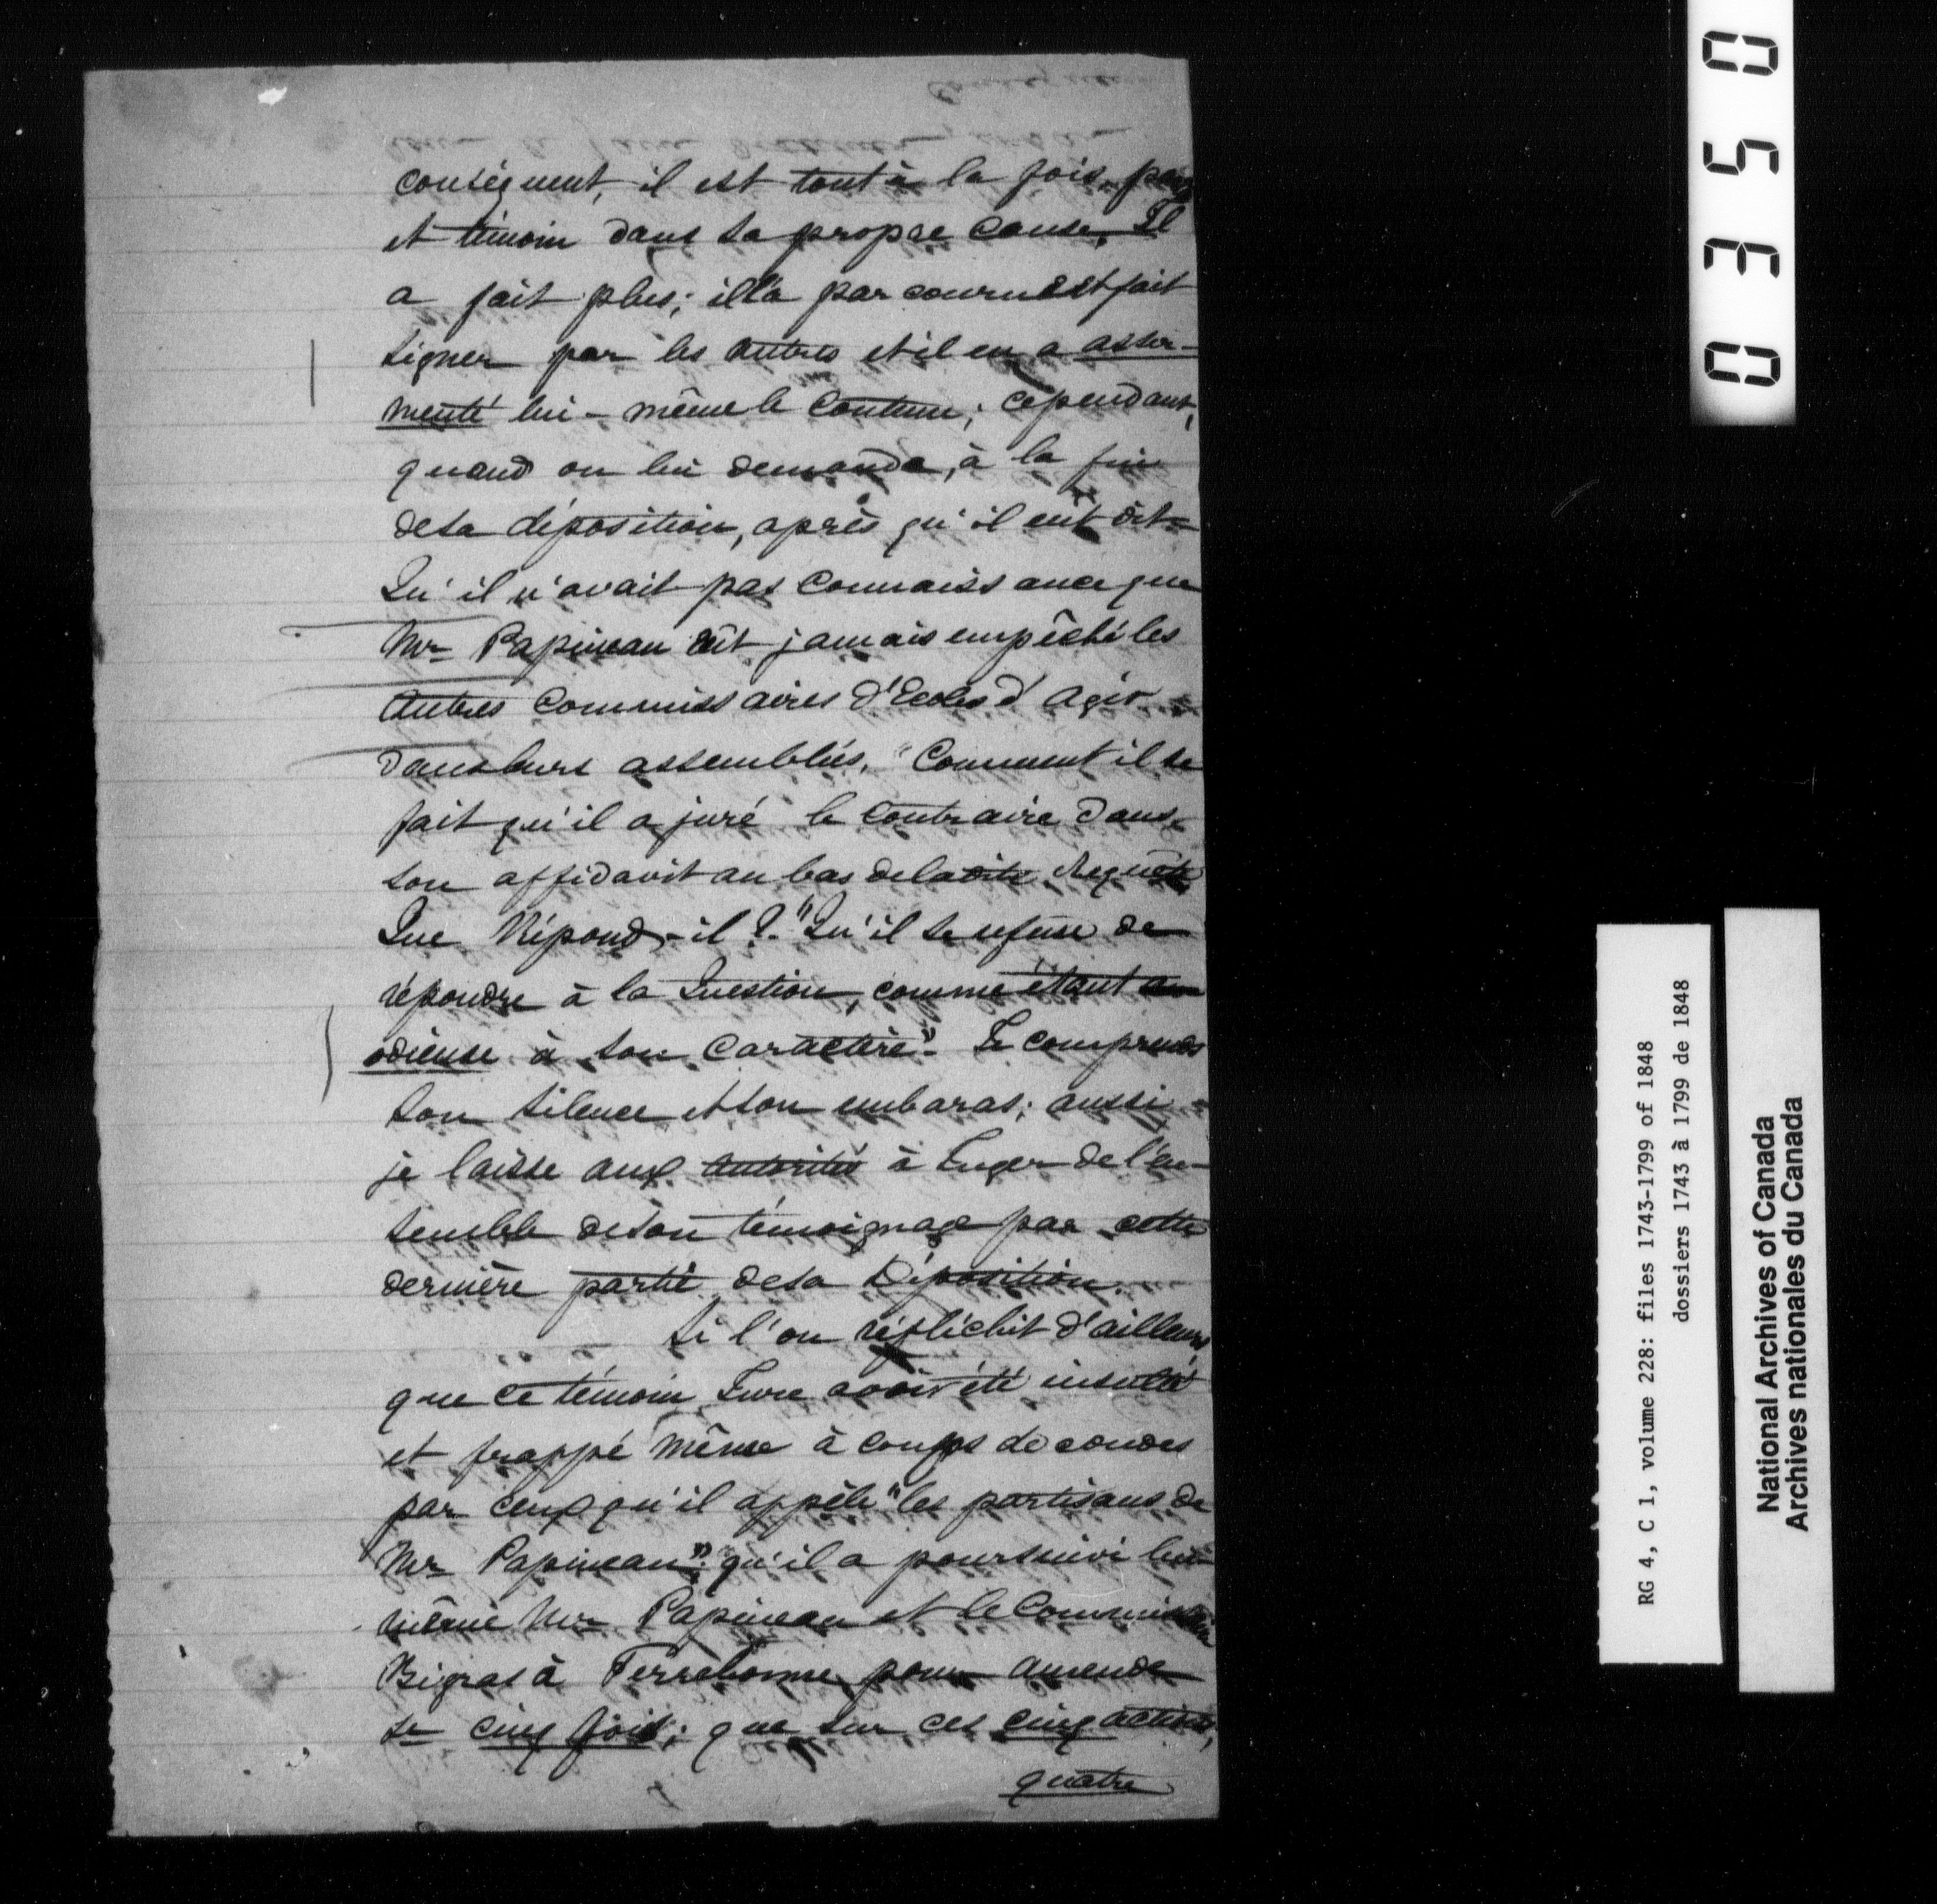 conséquent, il est tout à la fois,
et témoin dans sa propre cause. Il
a fait plus; il l'a parcouru et fait
signer par les autres et il en a asser-
menté lui-même le contenu; cependant,
quand on lui demanda, à la fin
de sa déposition, après qu'il eut dit
Qu'il n'avait pas connaissance que
Mr Papineau eût jamais empêché les
autres Commissaires d'Ecoles d'agir
dans leurs assemblées, "Comment il se
fait qu'il a juré le contraire dans
son affidavit au bas de la dite Requête
Que Répond-il?. "Qu'il se refuse de
répondre à la Question, comme étant
odieuse à son caractère". Je comprends
son silence et son embaras; aussi
je laisse aux autorités à Juger de l'en-
semble de son témoignage par cette
dernière partie de sa Déposition.
Si l'on réfléchit d'ailleurs
que ce témoin Jure avoir été insulté
et frappé même à coups de coudes
par ceux qu'il appèle "les partisans de
Mr Papineau": qu'il a poursuivi lui
même Mr Papineau et le Commissaire
Bigras à Terrebonne pour amende
se cinq fois; que sur ces cinq actions,
quatre
0350
RG 4, C 1, volume 228: files 1743-1799 of 1848
dossiers 1743 à 1799 de 1848
National Archives of Canada
Archives nationales du Canada